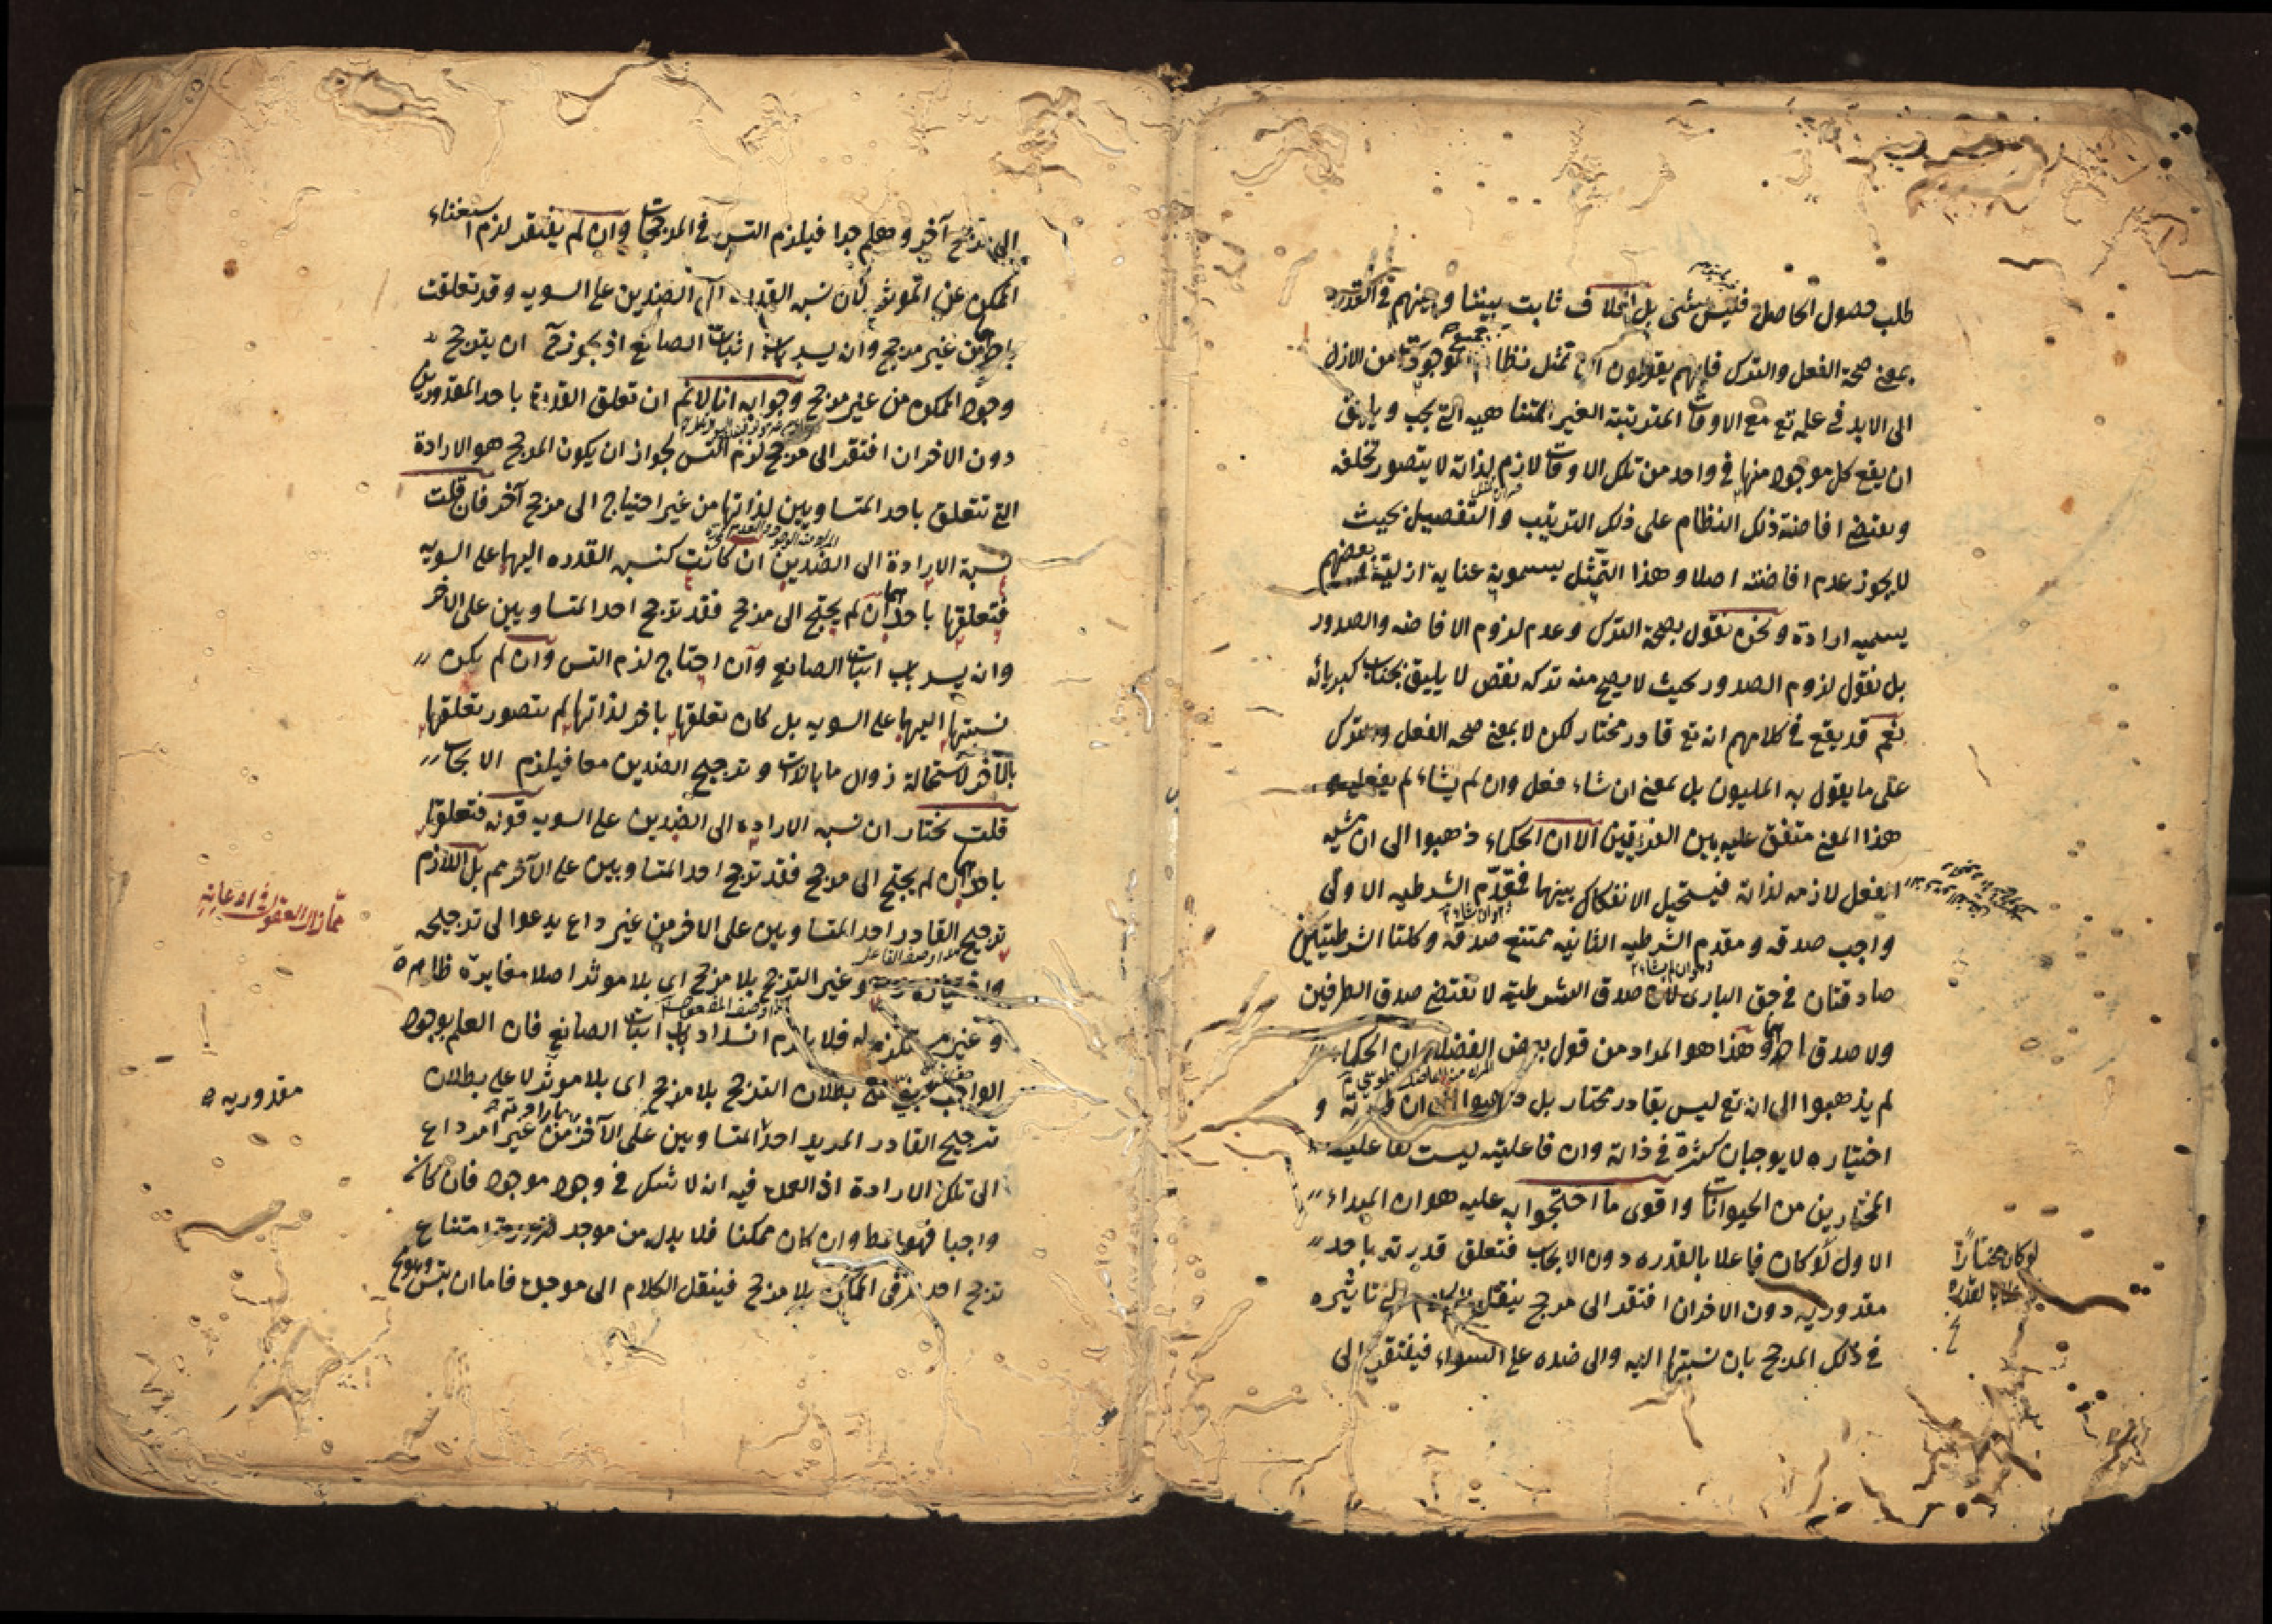 طلب حصول الحاصل فليس بشئ بل الخلاف ثابت بيننا وبينهم في القدرة
بمعنى صحة الفعل والترك فانهم يقولون ان تمثل نظام جميع الموجودات من الازل
الى الابد في علمه تع مع الاوقات المترتبة الغير المتناهيه التي يجب ويليق
ان يقع كل موجود منها في واحد من تلك الاوقات لازم لذاته لا يتصور تخلفه
ويقتضى افاضة ذلك النظام على ذلك الترتيب والتفصيل بحيث
لا يجوز عدم افاضته اصلا وهذا التمثل يسمونه عناية ازلية وبعضهم
يسميه ارادة ونحن نقول بصحة الترك وعدم لزوم الافاضه والصدور
بل نقول لزوم الصدور بحيث لا يصح منه تركه نقص لا يليق بجناب كبريائه
نعم قد يقع في كلامهم انه تع قادر مختار لكن لا بمعنى صحه الفعل والترك
على ما يقول به المليون بل بمعنى ان شاء فعل وان لم يشاء لم يفعل و
هذا المعنى متفق عليه بين الفريقين الا ان الحكماء ذهبوا الى ان مشيه
الفعل لازمه لذاته فيستحيل الانفكاك بينهما فمقدم الشرطيه الاولى
واجب صدقه ومقدم الشرطيه الثانيه ممتنع صدقه وكلتا الشرطيتين
صادقتان في حق البارى لان صدق الشرطية لا تقتضى صدق الطرفين
ولا صدق احدهما وهذا هو المراد من قول بعض الفضلاء ان الحكماء
لم يذهبوا الى انه تع ليس بقادر مختار بل ذهبوا الى ان قدرته و
اختياره لا يوجبان كثرة في ذاته وان فاعليته ليست كفاعليه
المختارين من الحيوانات واقوى ما احتجوا به عليه هو ان المبداء
الاول لو كان فاعلا بالقدره دون الايجاب فتعلق قدرته باحد
مقدوريه دون الاخر ان افتقر الى مرجح ينقل الكلام الى تاثيره
في ذلك المرجح بان نسبتها اليه والى ضده على السواء فيفتقر الى
لو كان مختارًا
الى ترجح آخر وهلم جرا فيلزم التس في المرجحات وان لم يفتقر لزم استغناء
الممكن عن الموثر لان نسبه القدرة الى الضدين على السويه وقد تعلقت
باحدهما من غير مرجح وانه يسد باب اثبات الصانع اذ يجوز ح ان يترجح
وجود الممكن من غير مرجح وجوابه انا لا نم ان تعلق القدرة باحد المقدورين
دون الاخر ان افتقر الى مرجح لزم التس لجواز ان يكون المرجح هو الارادة
التي تتعلق باحد المتساويين لذاتها من غير احتياج الى مرجح آخر فان قلت
نسبة الارادة الى الضدين ان كانت كنسبه القدره اليهما على السويه
فتعلقها باحدهما ان لم يحتج الى مرجح فقد ترجح احد المتساويين على الاخر
وانه يسد باب اثبات الصانع وان احتاج لزم التس وان لم يكن
نسبتها اليهما على السويه بل كان تعلقها باخر لذاتها لم يتصور تعلقها
بالاخر لاستحالة زوال ما بالذات وترجيح الضدين معا فيلزم الايجاب
قلت نختار ان نسبه الارادة الى الضدين على السويه قوله فتعلقها
باحدهما ان لم يحتج الى مرجح فقد ترجح احد المتساويين على الآخر مم بل اللازم
ترجيح القادر احد المتساويين على الاخر من غير داع يدعوا الى ترجيحه
وغير الترجح بلا مرجح اى بلا موثر اصلا مغايرة ظاهرة
وغير مستلزم له فلا يلزم انسداد باب اثبات الصانع فان العلم بوجود
الواجب بطلان الترجح بلا مرجح اى بلا موثر لا على بطلان
ترجيح القادر المريد احد المتساويين على الآخر من غير امر داع
الى تلك الارادة اذ العمدة فيه انه لا شك في وجود موجود فان كان
واجبا فهو المط وان كان ممكنا فلا بد له من موجد ضرورة امتناع
ترجح احد طرفى الممكن بلا مرجح فينقل الكلام الى موجده فاما ان يتس وهو مح
مقدوريه ه